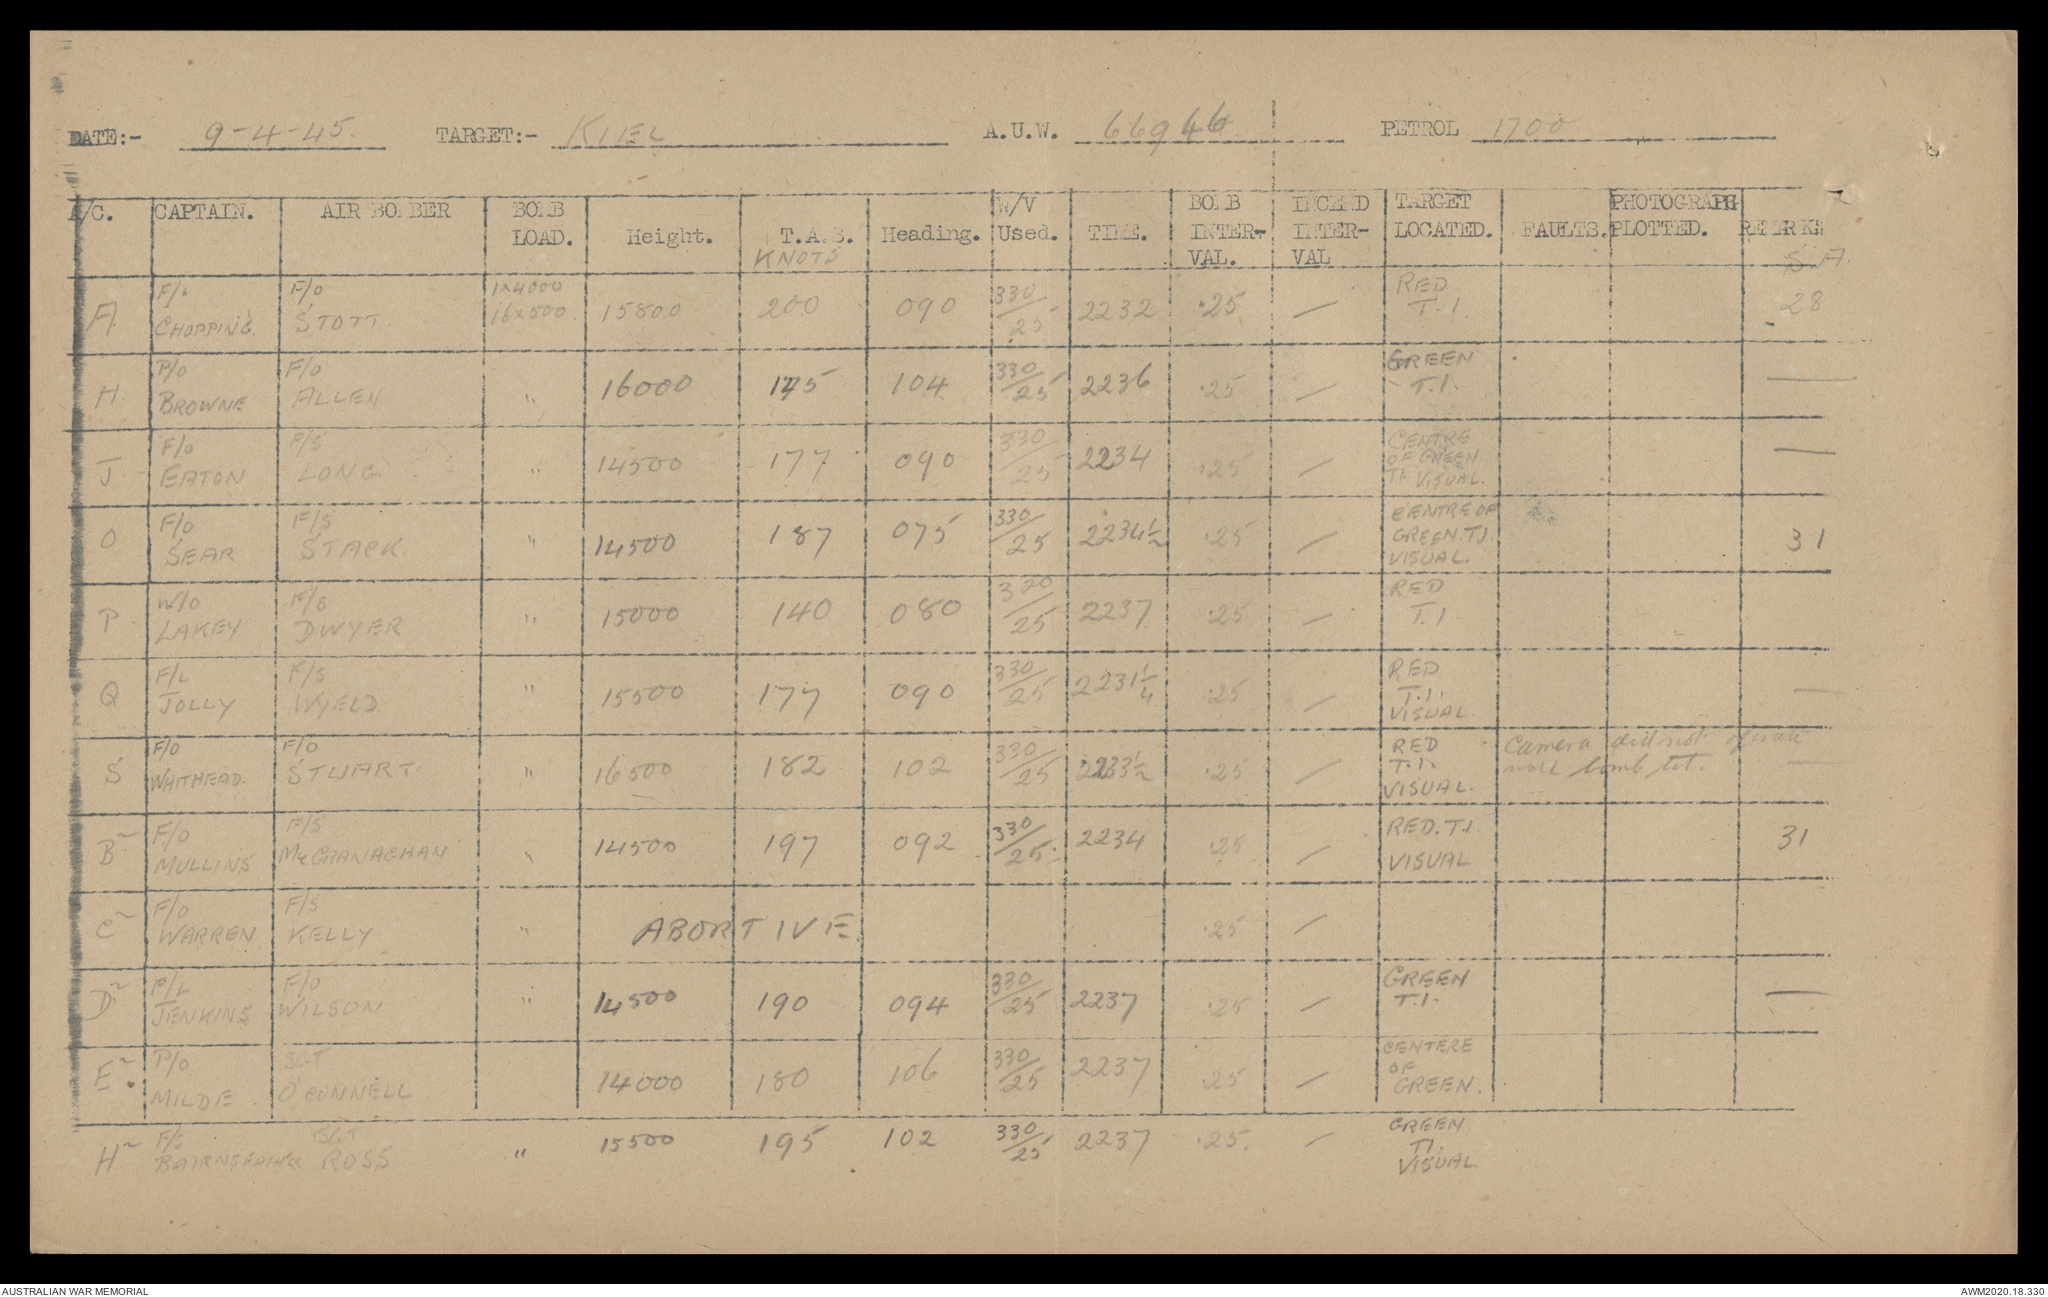 DATE:- 9-4-45. TARGET:- KIEL A.U.W. 66946 PETROL 1700
A/C. CAPTAIN. AIR BOMBER BOMB LOAD. Height. T.A.S. KNOTS Heading. W/V Used. TIME. BOMB INTER-VAL. INCEND INTER-VAL TARGET LOCATED. FAULTS. PHOTOGRAPH PLOTTED. REMARKS S.A.
A F/L CHOPPING. F/O STOTT. 1x4000 16x500. 15800 200 090 330/25 2232 .25 / RED T.I. 28
H P/O BROWNE F/O ALLEN " 16000 175 104 330/25 2236 .25 / GREEN T.I. —
J F/O EATON F/S LONG " 14500 177 090 330/25 2234 .25 / CENTRE OF GREEN T.I. VISUAL. —
O F/O SEAR F/S STACK. " 14500 187 075 330/25 2234½ .25 / CENTRE OF GREEN.T.I. VISUAL. 31
P W/O LAKEY F/S DWYER " 15000 140 080 320/25 2237 .25 / RED T.I
Q F/L JOLLY F/S WYELD " 15500 177 090 330/25 2231¼ .25 / RED T.I. VISUAL. —
S F/O WAITHEAD. F/O STUART " 16500 182 102 330/25 2233½ .25 / RED T.I. VISUAL. Camera did not operate bomb —
B~ F/O MULLINS F/S McGRANAGHAN " 14500 197 092 330/25 2234 .25 / RED.T.I VISUAL 31
C~ F/O WARREN F/S KELLY " ABORTIVE .25 /
D~ F/L JENKINS F/O WILSON " 14500 190 094 330/25 2237 .25 / GREEN T.I. —
E~ P/O MILDE SGT O'CONNELL 14000 180 106 330/25 2237 .25 / CENTERE OF GREEN.
H~ F/S SGT ROSS " 15500 195 102 330/25 2237 .25. / GREEN TI. VISUAL
AUSTRALIAN WAR MEMORIAL AWM2020.18.330